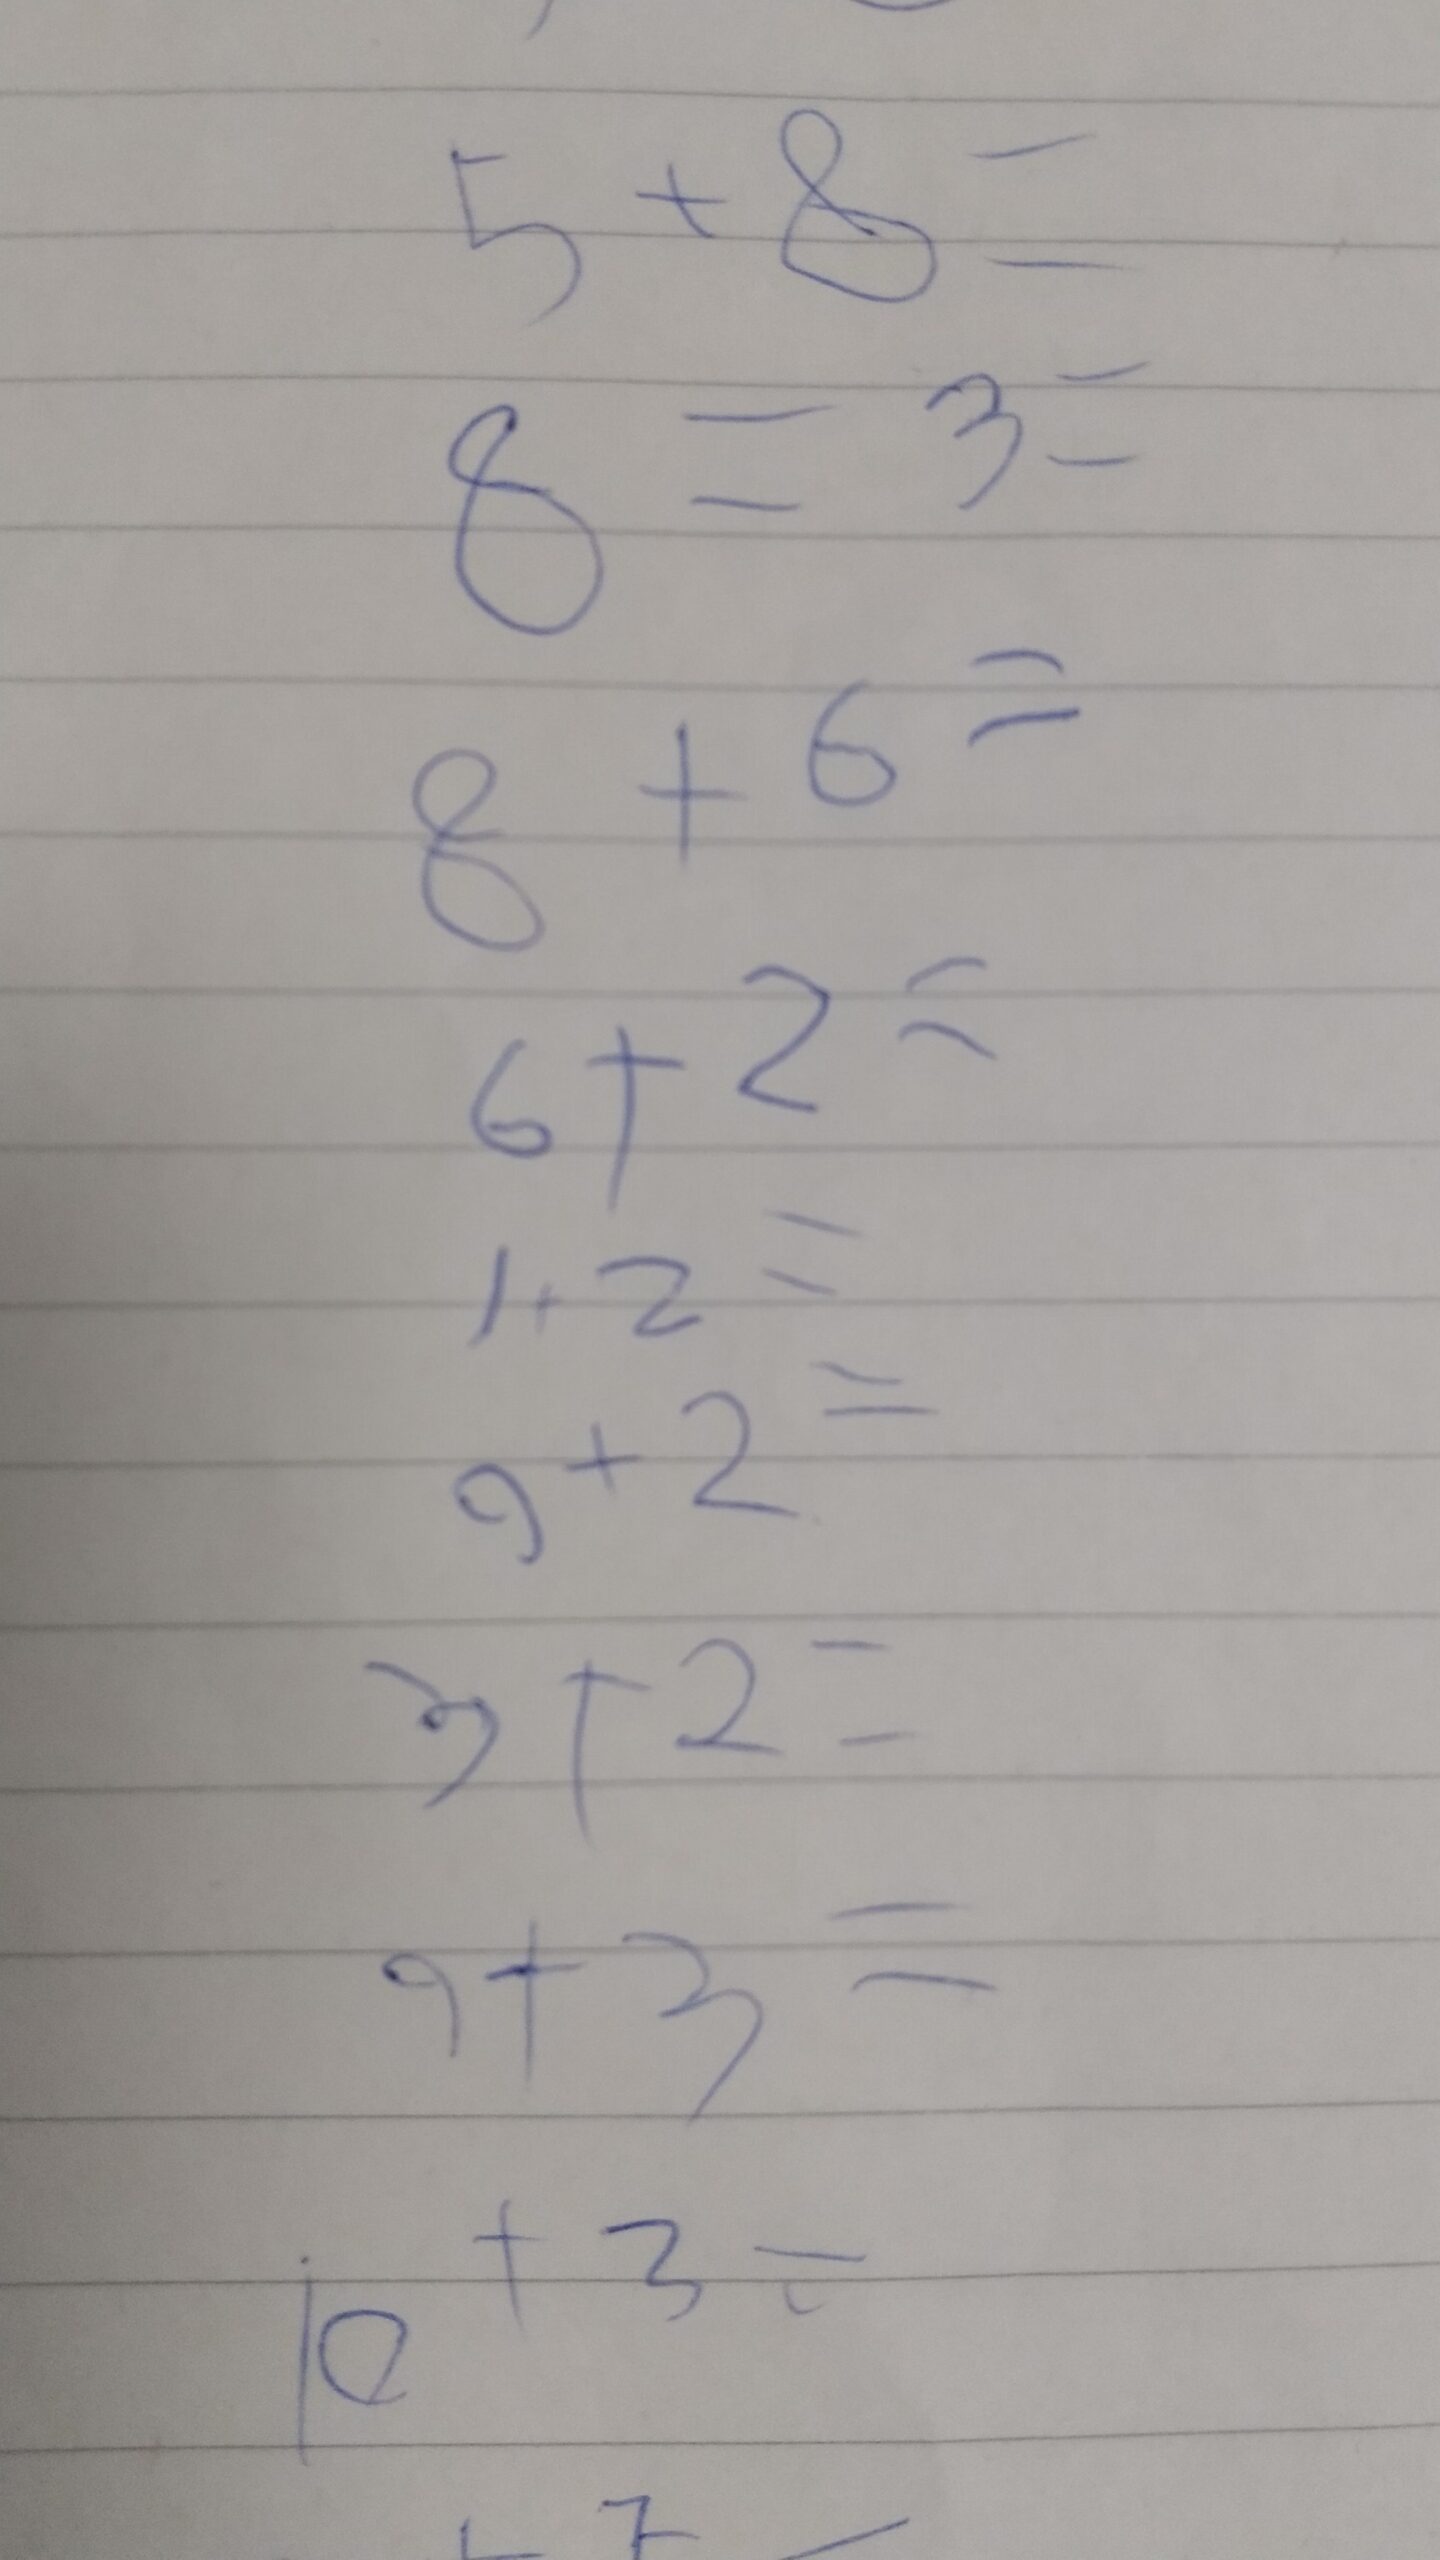 5 + 8 =
8 = 3 =
8 + 6 =
6 + 2 =
1 + 2 =
9 + 2 =
3 + 2 =
9 + 3 =
10 + 3 =
+ 7